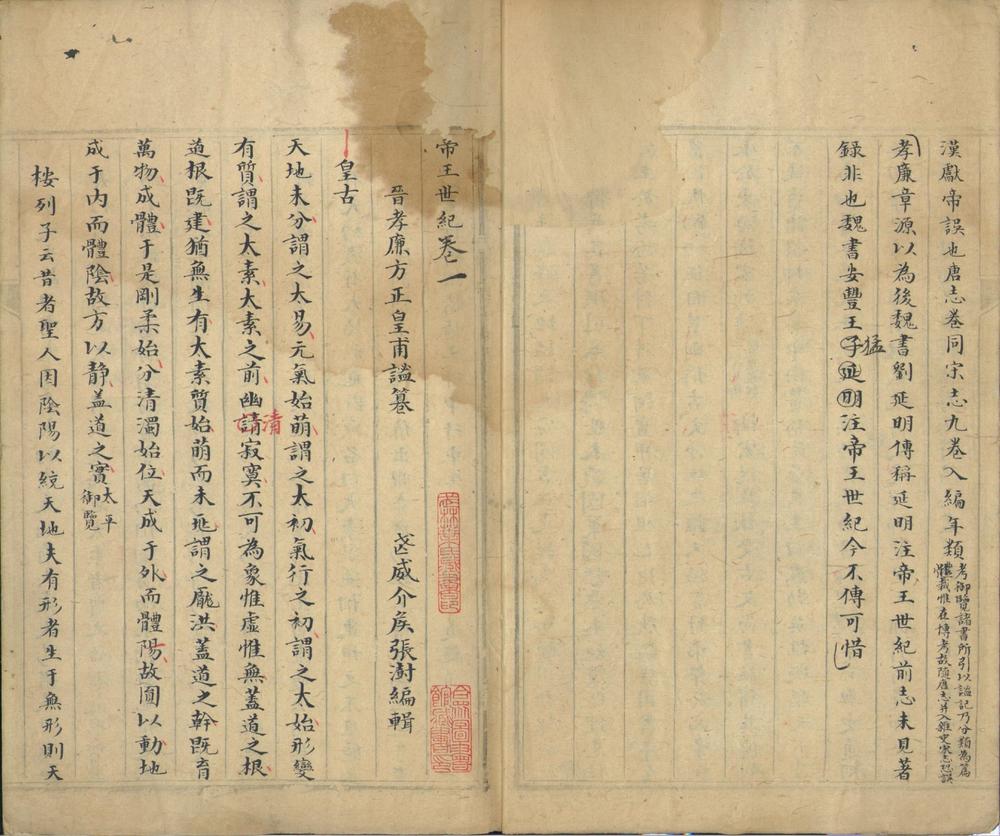 漢獻帝誤也唐志卷同宋志九卷入編年類考御覽諸書所引以謐記乃分類為篇體裁惟在博考故隨唐志并入雜史宋志恐誤
孝廉章源以為後魏書劉延明傳稱延明注帝王世紀前志未見著
録非也魏書安豐王子延明注帝王世紀今不傳可惜
猛
帝王世紀卷一
晉孝廉方正皇甫謐纂 武威介侯張澍編輯
皇古
天地未分謂之太易元氣始萌謂之太初氣行之初謂之太始形變
有質謂之太素太素之前幽請寂寞不可為象惟虛惟無蓋道之根
清
道根既建猶無生有太素質始萌而未兆謂之厖洪蓋道之幹既育
萬物成體于是剛柔始分清濁始位天成于外而體陽故圓以動地
成于内而體陰故方以静蓋道之實太平御覽
桉列子云昔者聖人因陰陽以統天地夫有形者生于無形則天